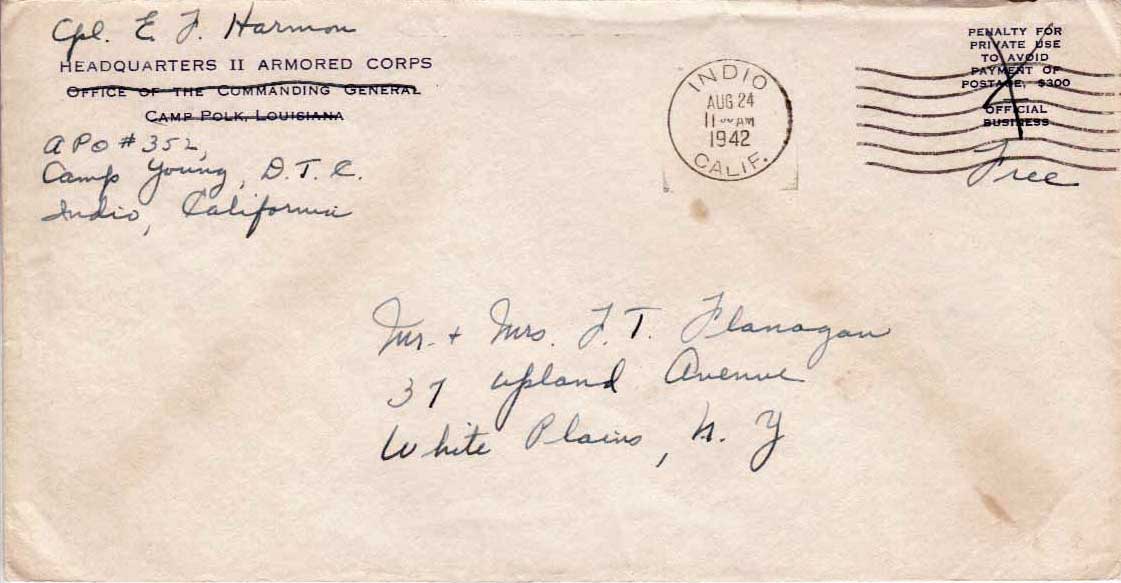 Cpl. E. F. Harmon
HEADQUARTERS II ARMORED CORPS
OFFICE OF THE COMMANDING GENERAL
CAMP POLK, LOUISIANA
APO # 352,
Camp Young, D.T.C.
Indio, California
INDIO
AUG 24
11 00 AM
1942
CALIF.
PENALTY FOR
PRIVATE USE
TO AVOID
PAYMENT OF
POSTAGE, $300
OFFICIAL
BUSINESS
Free
Mr. + Mrs. F. T. Flanagan
37 Upland Avenue
White Plains, N. Y